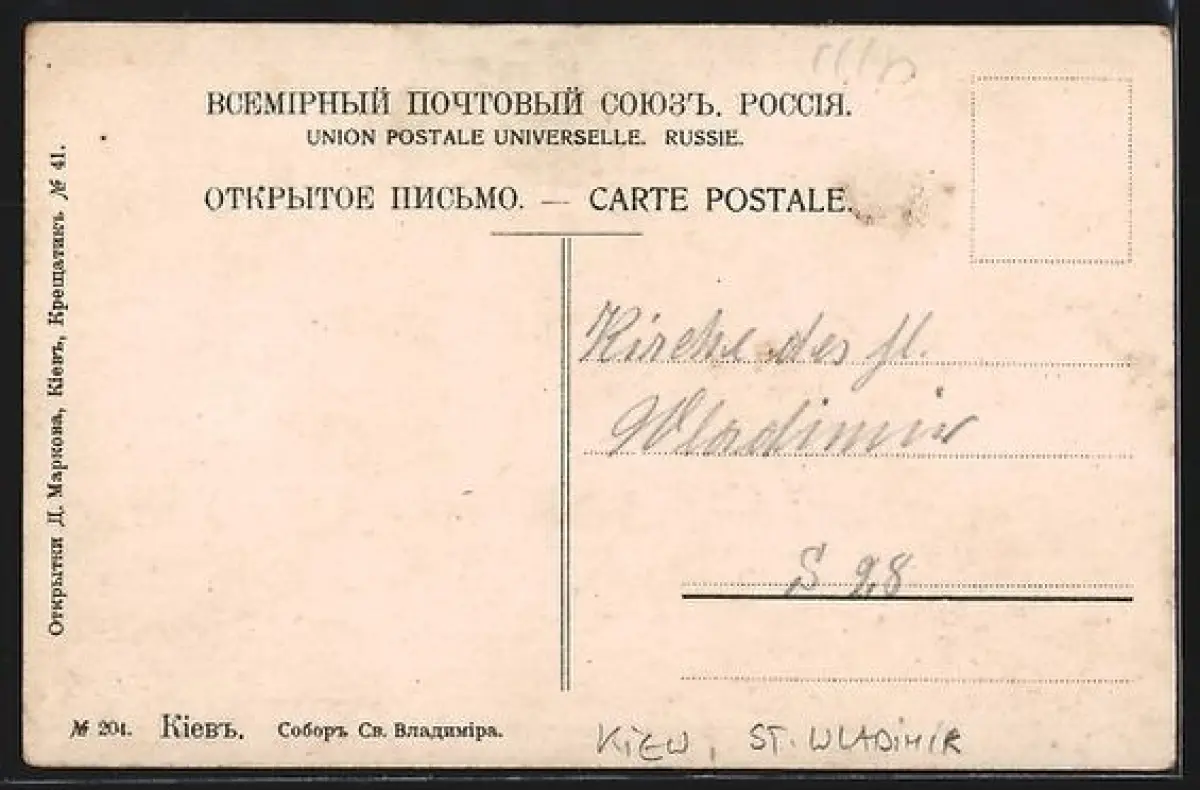 ВСЕМІРНЫЙ ПОЧТОВЫЙ СОЮЗЪ. РОССІЯ.
UNION POSTALE UNIVERSELLE. RUSSIE.
ОТКРЫТОЕ ПИСЬМО. — CARTE POSTALE.
Открытки Д. Маркова, Кіевъ, Крещатикъ № 41.
Kirche des hl.
Wladimir
S 28
№ 204. Кіевъ. Соборъ Св. Владиміра.
KIEW, ST. WLADIMIR